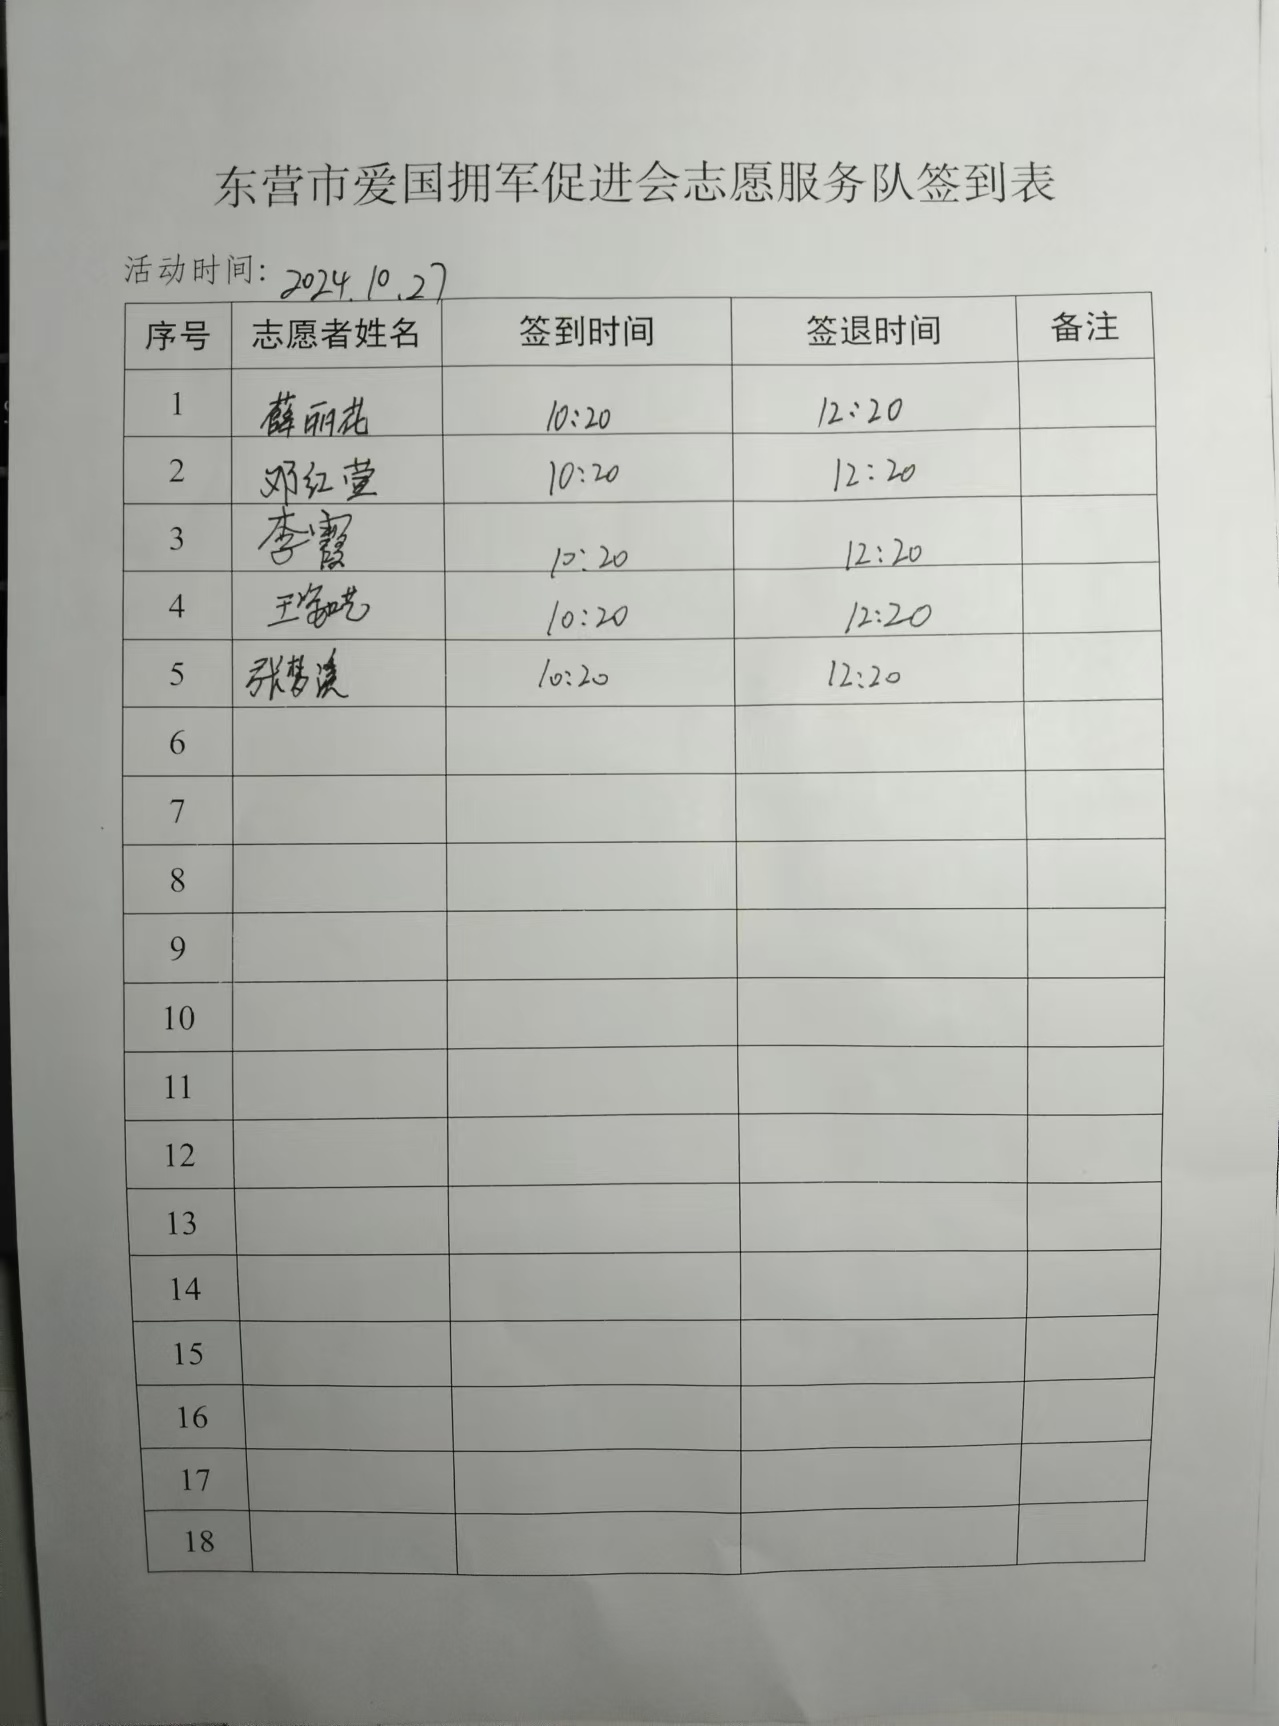 东营市爱国拥军促进会志愿服务队签到表
活动时间：2024.10.27
序号 志愿者姓名 签到时间 签退时间 备注
1 薛丽花 10:20 12:20
2 邓红萱 10:20 12:20
3 李霞 10:20 12:20
4 王 10:20 12:20
5 张梦溪 10:20 12:20
6
7
8
9
10
11
12
13
14
15
16
17
18